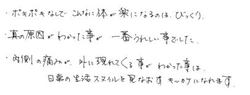 ・ポキポキなしで こんなに体が楽になるのは、びっくり。
・真の原因がわかった事が 一番うれしい事でした。
・内側の痛みが 外に現れてくる事が わかった事は、
日常の生活スタイルを見なおす キッカケになれます。